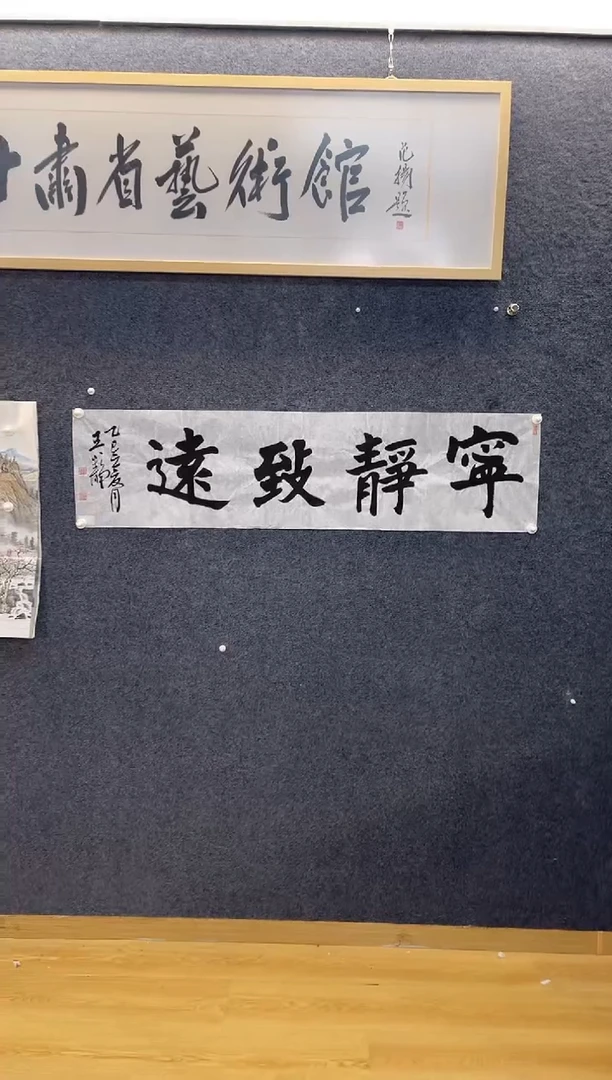 甘肅省藝術館
范擒題
寧靜致遠
乙巳年夏月
王靜